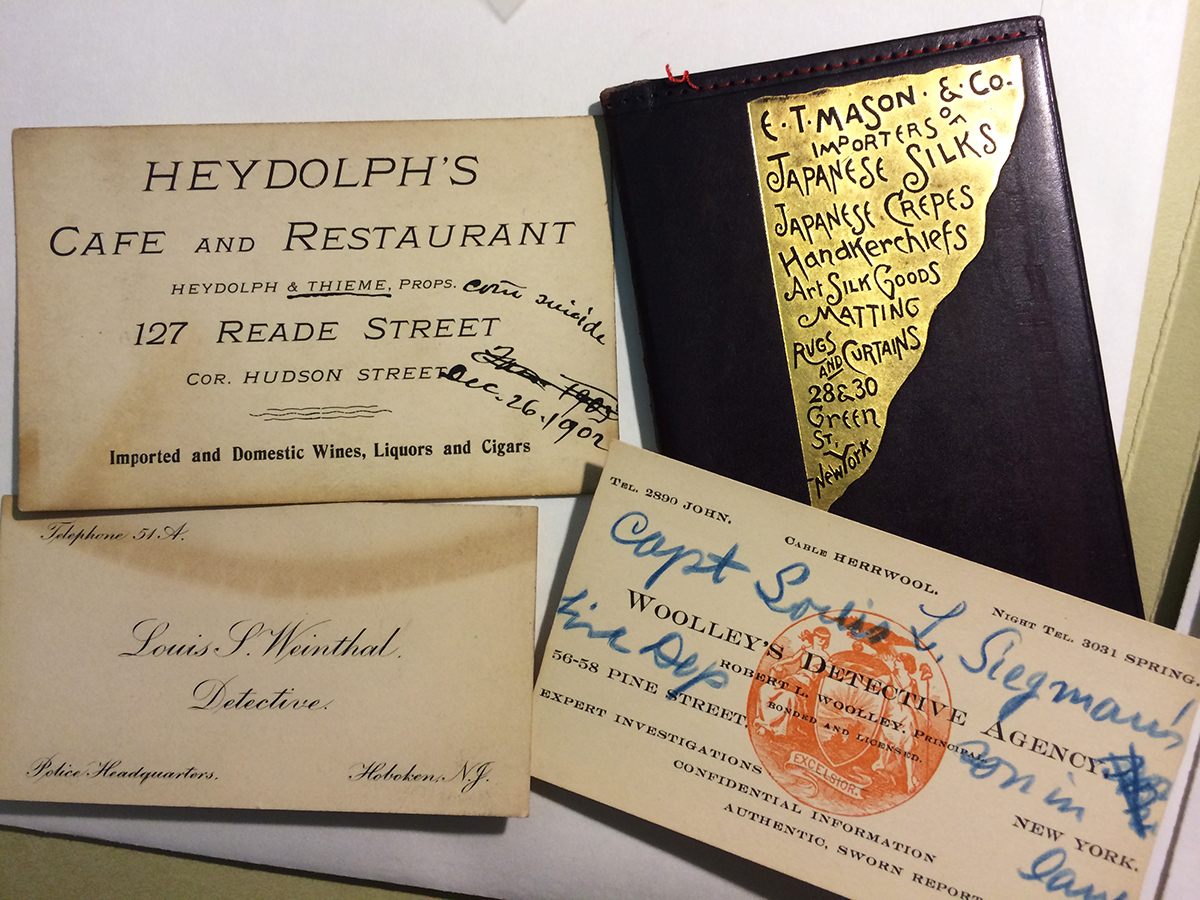 HEYDOLPH'S
CAFE AND RESTAURANT
HEYDOLPH & THIEME, PROPS. com suicide
127 READE STREET
COR. HUDSON STREET
Dec. 26. 1902
Imported and Domestic Wines, Liquors and Cigars
E. T. MASON. & Co.
IMPORTERS OF
JAPANESE SILKS
JAPANESE CREPES
HandKerchiefs
Art SILK GOODS
MATTING
RUGS AND CURTAINS
28 & 30
Green
ST.
New York
Telephone 51 A.
Louis S. Weinthal.
Detective.
Police Headquarters.
Hoboken, N.J.
TEL. 2890 JOHN.
CABLE HERRWOOL.
NIGHT TEL. 3031 SPRING.
Capt Louis L. Siegman's
son in
Fire Dep
WOOLLEY'S DETECTIVE AGENCY
ROBERT L. WOOLLEY, PRINCIPAL.
BONDED AND LICENSED.
56-58 PINE STREET,
NEW YORK.
EXCELSIOR.
EXPERT INVESTIGATIONS
CONFIDENTIAL INFORMATION
AUTHENTIC, SWORN REPORT